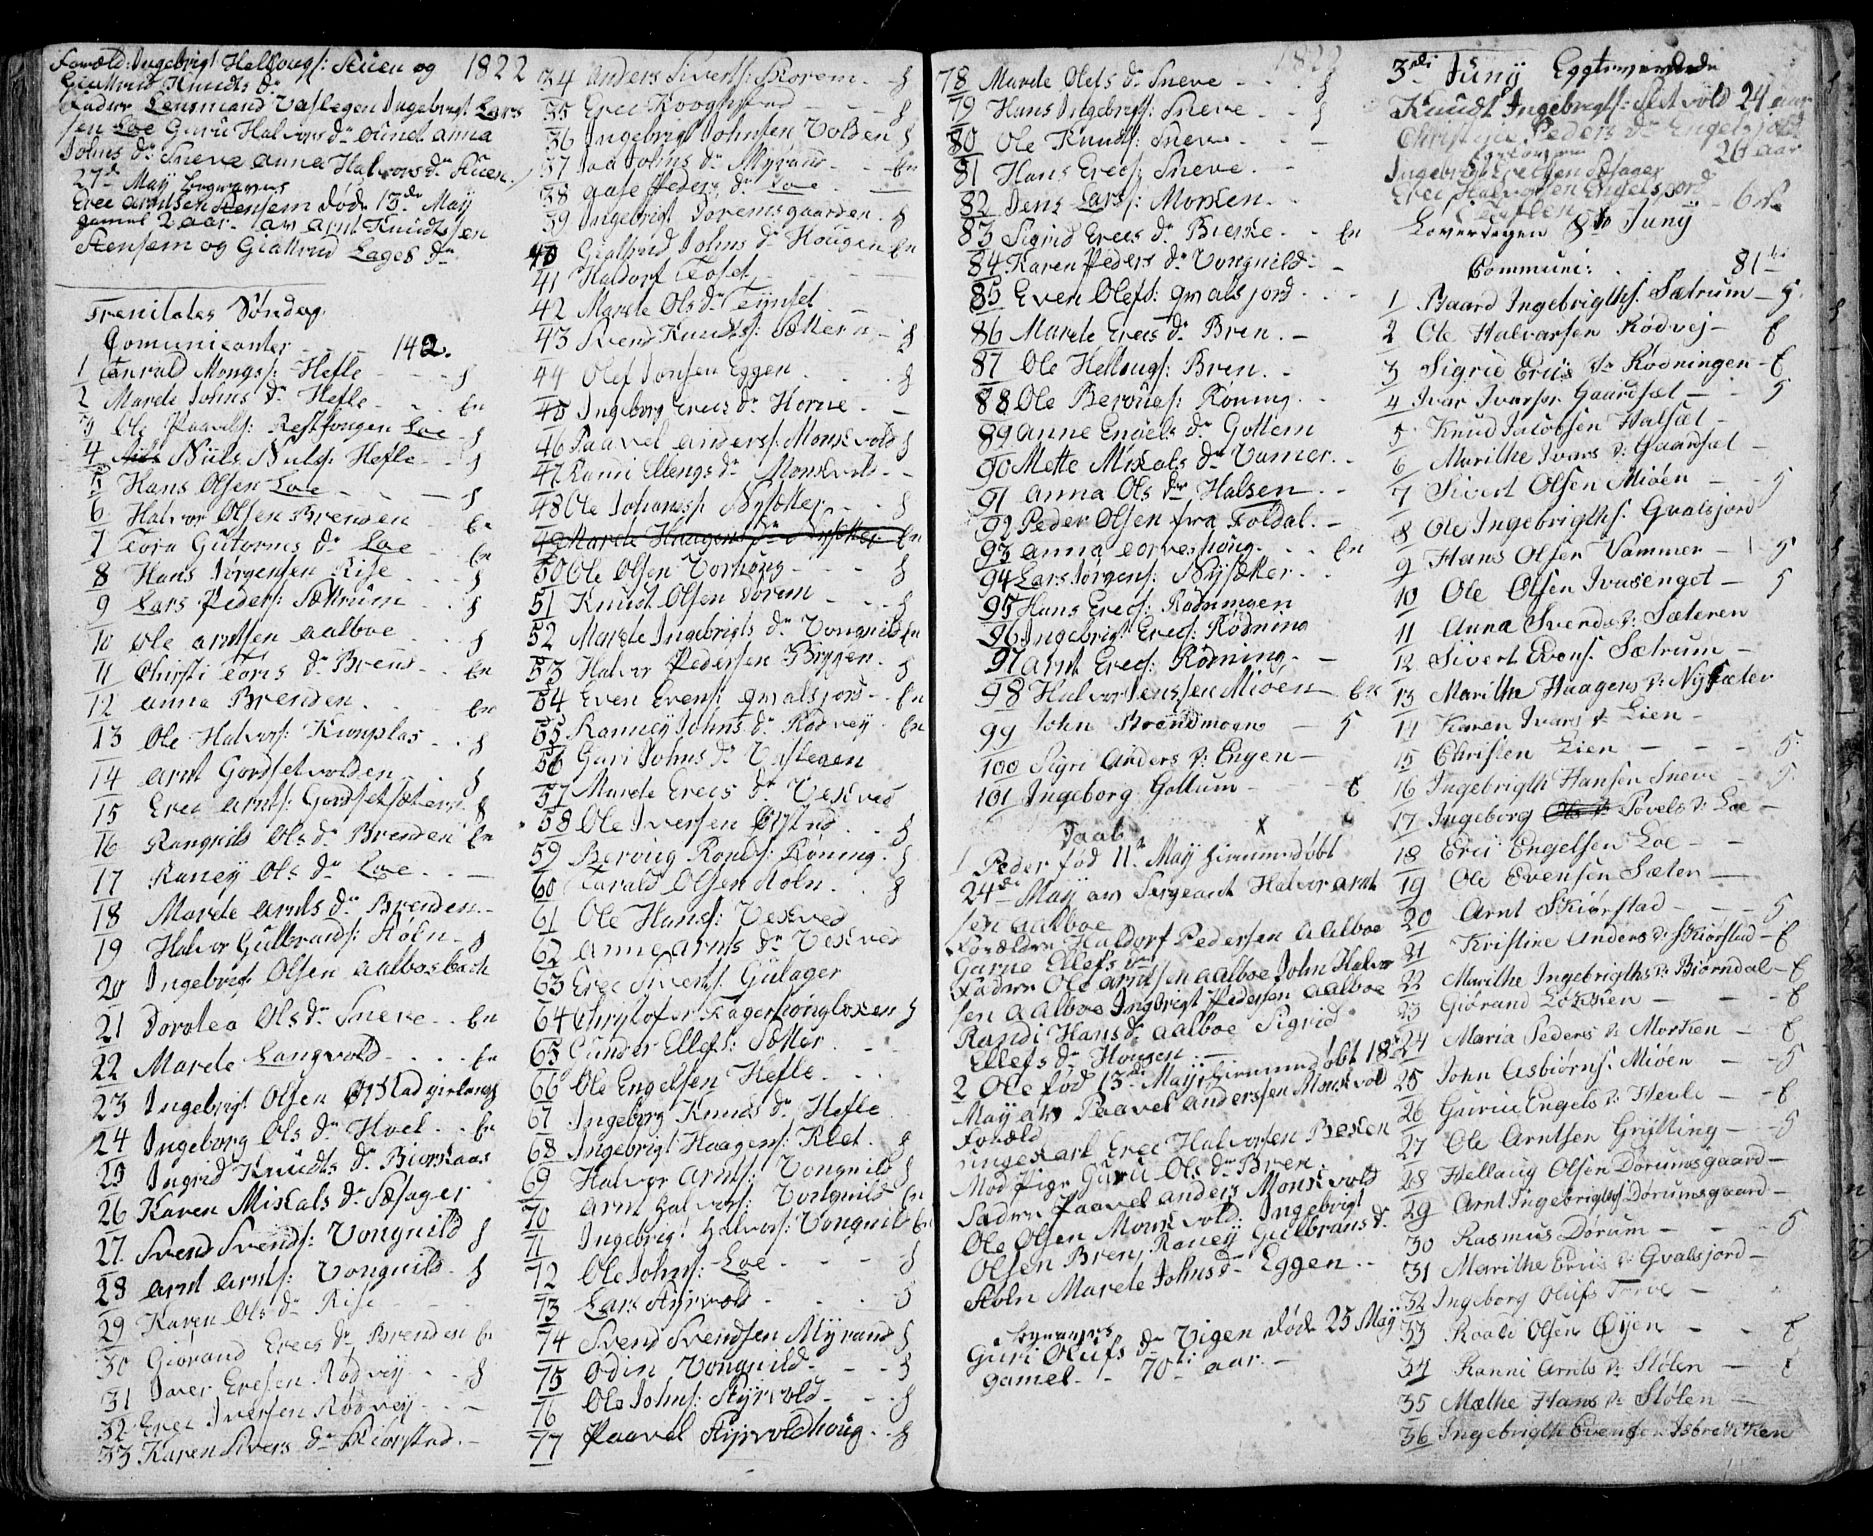 Foræld: Ingebrigt Hellougs: Stuen og 1822
Giertrud Knudts dr
Fadder Lensmand Vaslegen Ingebrigt Lars
sen Loe Guru Halvors dr Ounet Anna
Johns dr Sneve Anna Halvors dr Stuen
27de May begraves
Erec Arntsen Stensem døde 13de May
gamel 2 aar. av Arnt Knudtsen
Stensem og Giertrud Lages dr
Trenitates Søndag
Comunicanter 142.
1 Mongs: Hefle
2 Marete Johns dr Hefle En
3 Ole Paavels: Loe
4 Niils Nuls: Hefle
5 Hans Olsen Loe
6 Halvor Olsen Brenden En
7 Tora Gutorms dr Loe En
8 Hans Jørgensen Rise
9 Lars Peders: Sættrum
10 Ole Arntsen Aalboe
11 Christi Tores dr Brend En
12 Anna Brenden En
13 Ole Halvors: Kronplas
14 Arnt Gordsetvolden
15 Erec Arnts: Gordsetsæteren
16 Rangnild Ols dr Brenden En
17 Raney Ols dr Loe
18 Marete Arnts dr Brenden
19 Halvor Gulbrands: Støln
20 Ingebrigt Olsen Aalbosbach
21 Dorotea Ols dr Sneve En
22 Marete Langvold En
23 Ingebrigt Olsen Ørstad
24 Ingeborg Ols dr Hoel En
25 Ingrid Knudts dr Biorkaas
26 Karen Mikals dr Sæsager
27 Svend Svends: Vongnild
28 Arnt Arnts: Vongnild
29 Karen Ols dr Rise
30 Giørand Erecs dr Brenden En
31 Iver Eresen Rødvey
32 Erec Iversen Rødvey
33 Karen Sivers dr Skiørstad
34 Anders Siverts: Horem
35 Erec Kroghstad
36 Ingebrigt Johnsen Volden
37 Johns dr Myrand En
38 Aase Peders dr Loe
39 Ingebrigt Doremsgaarden
40 Giertrud Johns dr Hougen En
41 Haldorf Teoset
42 Marete Ols dr Tynset
43 Svend Knudts: Sættern
44 Olef Jonsen Eggen
45 Ingeborg Erecs dr Horne
46 Paavel Anders: Monkvold
47 Ranni Ellengs dr Monkvold
48 Ole Johans: Nysætter
49 Marete Haagens dr Nysætter En
50 Ole Olsen Vorhoug
51 Knudt Olsen Dorum
52 Marete Ingebrigts dr Vongnild En
53 Halvor Pedersen Bryggen
54 Even Evens: Gvalsjord En
55 Ranney Johns dr Rødvey En
56 Guri Johns dr Vaslegen
57 Marete Erecs dr Vekved
58 Ole Iversen Ørstad
59 Beroug Ronds: Roning
60 Tarald Olsen Støln
61 Ole Hans: Vekved
62 Anne Arnts dr Vekved
63 Erec Siverts: Gulager
64 Chrystofer Fagerhougløkken
65 Gunder Ellefs: Sætter
66 Ole Engelsen Hefle
67 Ingeborg Knuds dr Hefle
68 Ingebrigt Haagens: Klet
69 Halvor Arnts: Vongnild
70 Arnt Halvors: Vongnild En
71 Ingebrigt Halvors: Vongnild En
72 Ole Johns: Loe
73 Lars Styrvold
74 Svend Svendsen Myrand
75 Odin Vongnild
76 Ole Johns: Styrvold
77 Paavel Styrvoldhoug
78 Marete Olefs dr Sneve 1822
79 Hans Ingebrigts: Sneve
80 Ole Knuds: Sneve
81 Hans Erecs: Sneve
82 Jens Lars: Morken
83 Sigrid Erecs dr Bierke En
84 Karen Peders dr Vongnild
85 Even Olefs: Gvalsjord
86 Marete Erecs dr Bren
87 Ole Hellougs: Bren
88 Ole Berougs: Roning
89 Anne Engels dr Gottem
90 Mette Mikals dr Vamer
91 Anna Ols dr Halsen
92 Peder Olsen fra Foldal
93 Anna Torveshoug En
94 Lars Jørgens: Nysæker
95 Hans Erecs: Rødningen
96 Ingebrigt Erecs: Rødning
97 Arnt Erecs: Rødning
98 Halvor Jenssen Mioen En
99 John Brændmoen 5
100 Sigri Anders dr: Engen
101 Ingeborg Gottum E
Daab
1 Peder fød 11te May hiemmedøbt
24de May av Sergeant Halvor Arnt
sen Aalboe
Forældre Haldorf Pedersen Aalboe
Gurne Ellefs dr
Faddre Ole Arntsen Aalboe John Halvor
sen Aalboe Ingebrigt Pedersen Aalboe
Randi Hans dr Aalboe Sigrid
Ellefs dr Hougen
2 Ole fød 13de May hiemmedøbt 18de
May av Paavel Anderssen Monkvold
Foræld
ungekarl Erec Halvorsen Bekken
Mod Pige Guru Ols dr Bren
Fadre Paavel Anders Monkvold
Ole Olsen Monkvold Ingebrigt
Olsen Bren, Raney Gulbrans dr
Støln Marete Johns dr Eggen
begraves
Guri Olufs dr Vigen døde 25 May
gamel 70ti aar.
3die Juny Egteviede
Knudt Ingebrigts: Setvold 24 aar
Peders dr Engelsjord
20 aar
Ingebrigt Erecsen Sæsager
Erec Halvorsen Engelsjord
Løverdagen 8de Juny
Communi: 81ti
1 Baard Ingebrigths. Sætrum 5
2 Ole Halvarsen Rødvej E
3 Sigrid Erics dr Rødningen E
4 Ivar Ivarsen Gaardsæt 5
5 Knud Jacobsen Halsæt
6 Marithe Ivars dr: Gaardsæt
7 Sivert Olsen Mioen 5
8 Ole Ingebrigths. Gvalsjord
9 Hans Olsen Vammer 5
10 Ole Olsen Ivasenget 5
11 Anna Svends dr: Sæteren
12 Sivert Evens. Sætrum
13 Marithe Haagens dr: Nysæter
14 Karen Ivars dr Lien
15 Christen Lien 5
16 Ingebrigth Hansen Sneve 5
17 Ingeborg Povels dr: Loe
18 Eric Engelsen Loe
19 Ole Evensen Sæter
20 Arnt Skiørstad 5
21 Kristine Anders dr: Skiørstad E
22 Marithe Ingebrigths dr: Biørndal E
23 Giørand Løkken E
24 Maria Peders dr: Morken E
25 John Asbiørns. Mioen 5
26 Guruu Engels dr: Hevle E
27 Ole Arntsen Grytting 5
28 Hellaug Olsen Dørumsgaard
29 Arnt Ingebrigths. Dørumsgaard
30 Rasmus Dørum 5
31 Marithe Erics dr: Gvalsjord
32 Ingeborg Olufs Torve
33 Roald Olsen Øyen E
34 Ranni Arnts dr: Stølen E
35 Mæthe Hans dr: Stølen
36 Ingebrigth Evensen Isbrekken